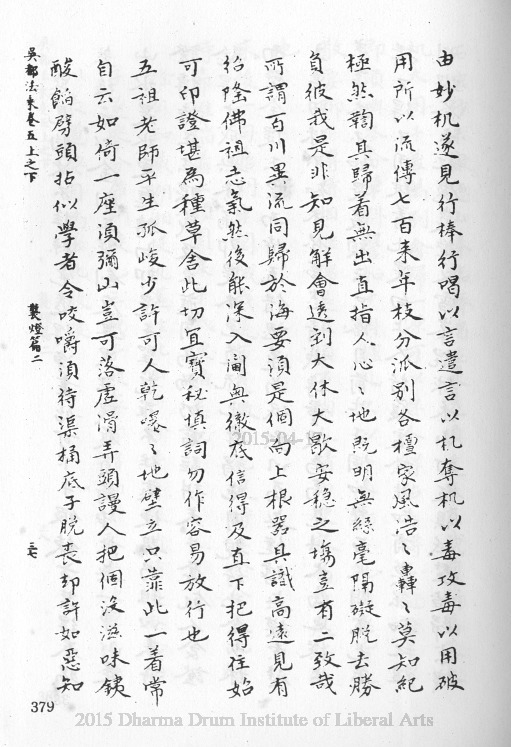 由妙机遂見行棒行喝以言遣言以机奪机以毒攻毒以用破
用所以流傳七百来年枝分派別各擅家風浩〻轟〻莫知紀
極然鞫其歸着無出直指人心〻地既明無絲毫隔礙脫去勝
負彼我是非知見解會透到大休大歇安穩之塲豈有二致哉
所謂百川異流同歸於海要須是個向上根器具識高遠見有
紹隆佛祖志氣然後能深入閫奥徹底信得及直下把得住始
可印證堪為種草舍此切宜寶秘慎詞勿作容易放行也
五祖老師平生孤峻少許可人乾曝〻地壁立只靠此一着常
自云如倚一座須彌山豈可落虛滑弄頭謾人把個沒滋味鉄
酸餡劈頭拈似學者令咬嚼須待渠桶底子脫喪却許如惡知
吳都法乘卷五上之下
襲燈篇二
三七
379
2015-04-1
2015 Dharma Drum Institute of Liberal Arts